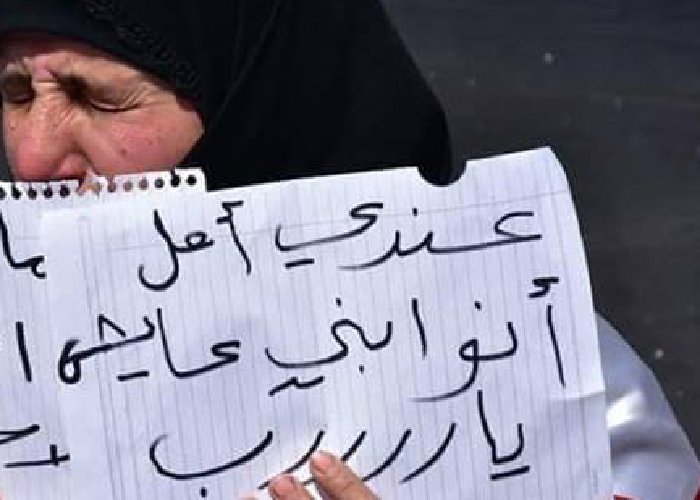 عندي أمل
أنو ابني عايش
يا رررررب